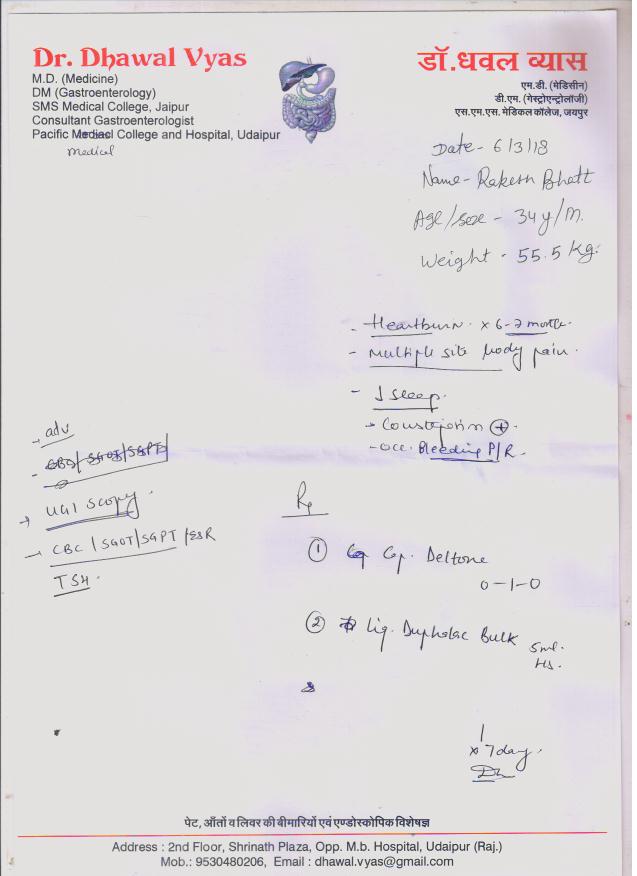 Dr. Dhawal Vyas
M.D. (Medicine)
DM (Gastroenterology)
SMS Medical College, Jaipur
Consultant Gastroenterologist
Pacific Mediacl College and Hospital, Udaipur
medical
डॉ.धवल व्यास
एम.डी. (मेडिसीन)
डी.एम. (गेस्ट्रोएन्ट्रोलॉजी)
एस.एम.एस. मेडिकल कॉलेज, जयपुर
Date - 6/3/18
Name - Rakesh Bhatt
Age/sex - 34y/M.
Weight - 55.5 Kg.
- Heartburn. x 6-7 month.
- Multiple site body pain.
- ↓ sleep.
→ Constipation ⊕.
- occ. Bleeding P/R.
→ adv
- CBC/SGOT/SGPT
→ UGI Scopy.
→ CBC / SGOT/SGPT /ESR
TSH.
Rx
① Cap. Deltone
0-1-0
② Liq. Duphalac Bulk 5ml.
HS.
x 7 day.
पेट, आँतों व लिवर की बीमारियों एवं एण्डोस्कोपिक विशेषज्ञ
Address : 2nd Floor, Shrinath Plaza, Opp. M.b. Hospital, Udaipur (Raj.)
Mob.: 9530480206, Email : dhawal.vyas@gmail.com